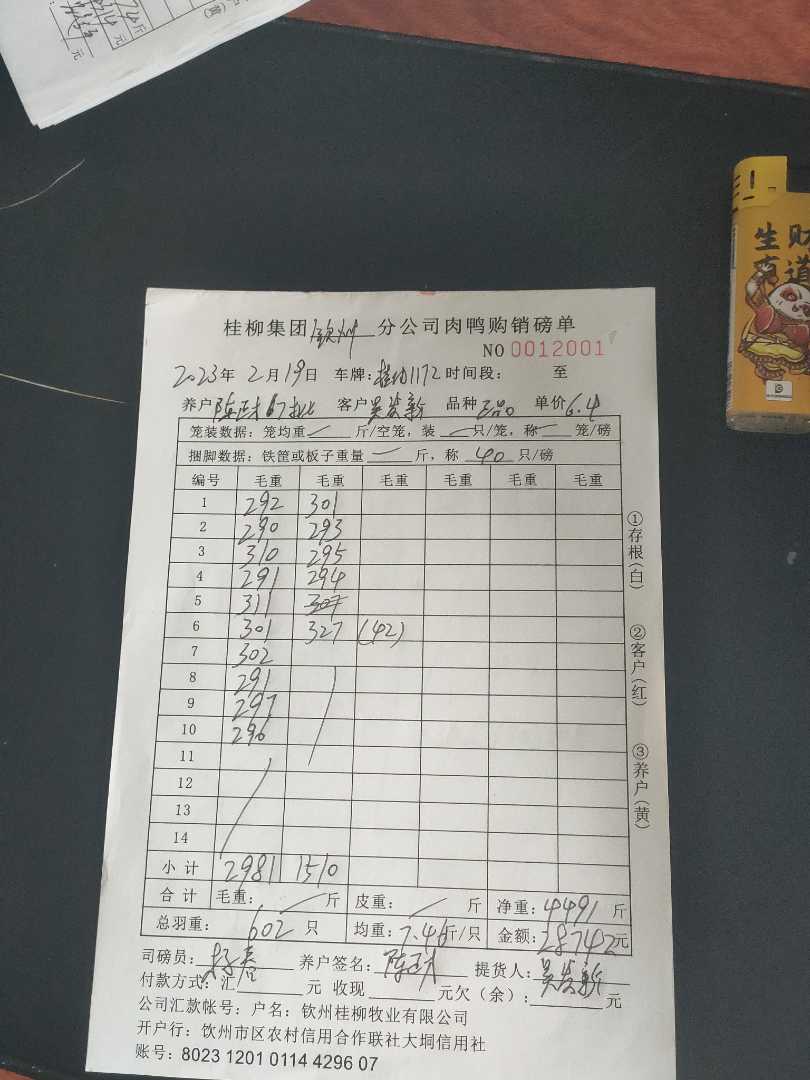 元
元
生财
有道
桂柳集团钦州分公司肉鸭购销磅单
NO 0012001
2023年 2月19日 车牌: 1172 时间段: 至
养户 客户 品种 单价6.4
笼装数据: 笼均重 斤/空笼, 装 只/笼, 称 笼/磅
捆脚数据: 铁筐或板子重量 斤, 称 40 只/磅
编号 毛重 毛重 毛重 毛重 毛重 毛重
1 292 301
2 290 293
3 310 295
4 291 294
5 311 307
6 301 327 (42)
7 302
8 291
9 297
10 296
11
12
13
14
小计 2981 1510
合计 毛重: 斤 皮重: 斤 净重: 4491 斤
总羽重: 602 只 均重: 7.46斤/只 金额: 28742元
司磅员: 养户签名: 提货人:
付款方式: 汇 元 收现 元欠(余): 元
公司汇款帐号: 户名: 钦州桂柳牧业有限公司
开户行: 钦州市区农村信用合作联社大垌信用社
账号: 8023 1201 0114 4296 07
①存根(白)
②客户(红)
③养户(黄)